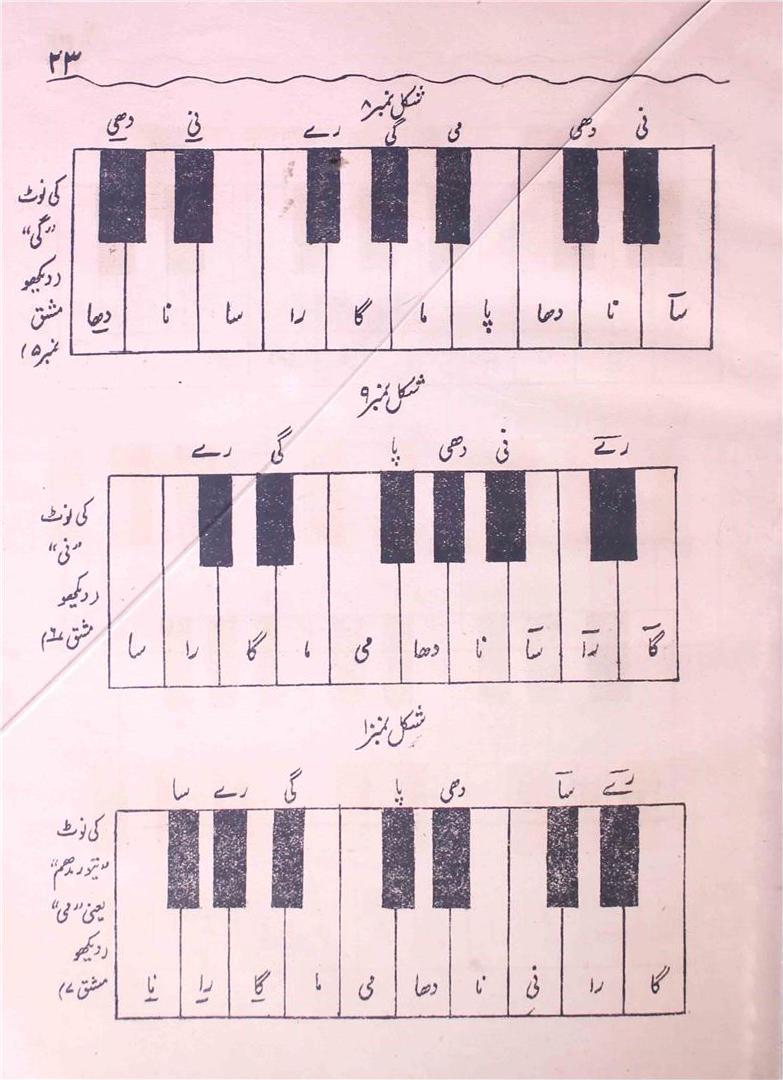 ۲۳
شکل نمبر ۸
دھی نی رے گی می دھی نی
کی نوٹ
"گی"
(دیکھو
مشق
نمبر ۵)
دھا نا سا را گا ما پا دھا نا سآ
شکل نمبر ۹
رے گی پا دھی نی رے
کی نوٹ
"نی"
(دیکھو
مشق ۶)
سا را گا ما می دھا نا سآ رآ گآ
شکل نمبر ۱۰
سا رے گی پا دھی سآ رے
کی نوٹ
"تیور مدھم"
یعنی "می"
(دیکھو
مشق ۷)
نا را گا ما می دھا نا نی را گا